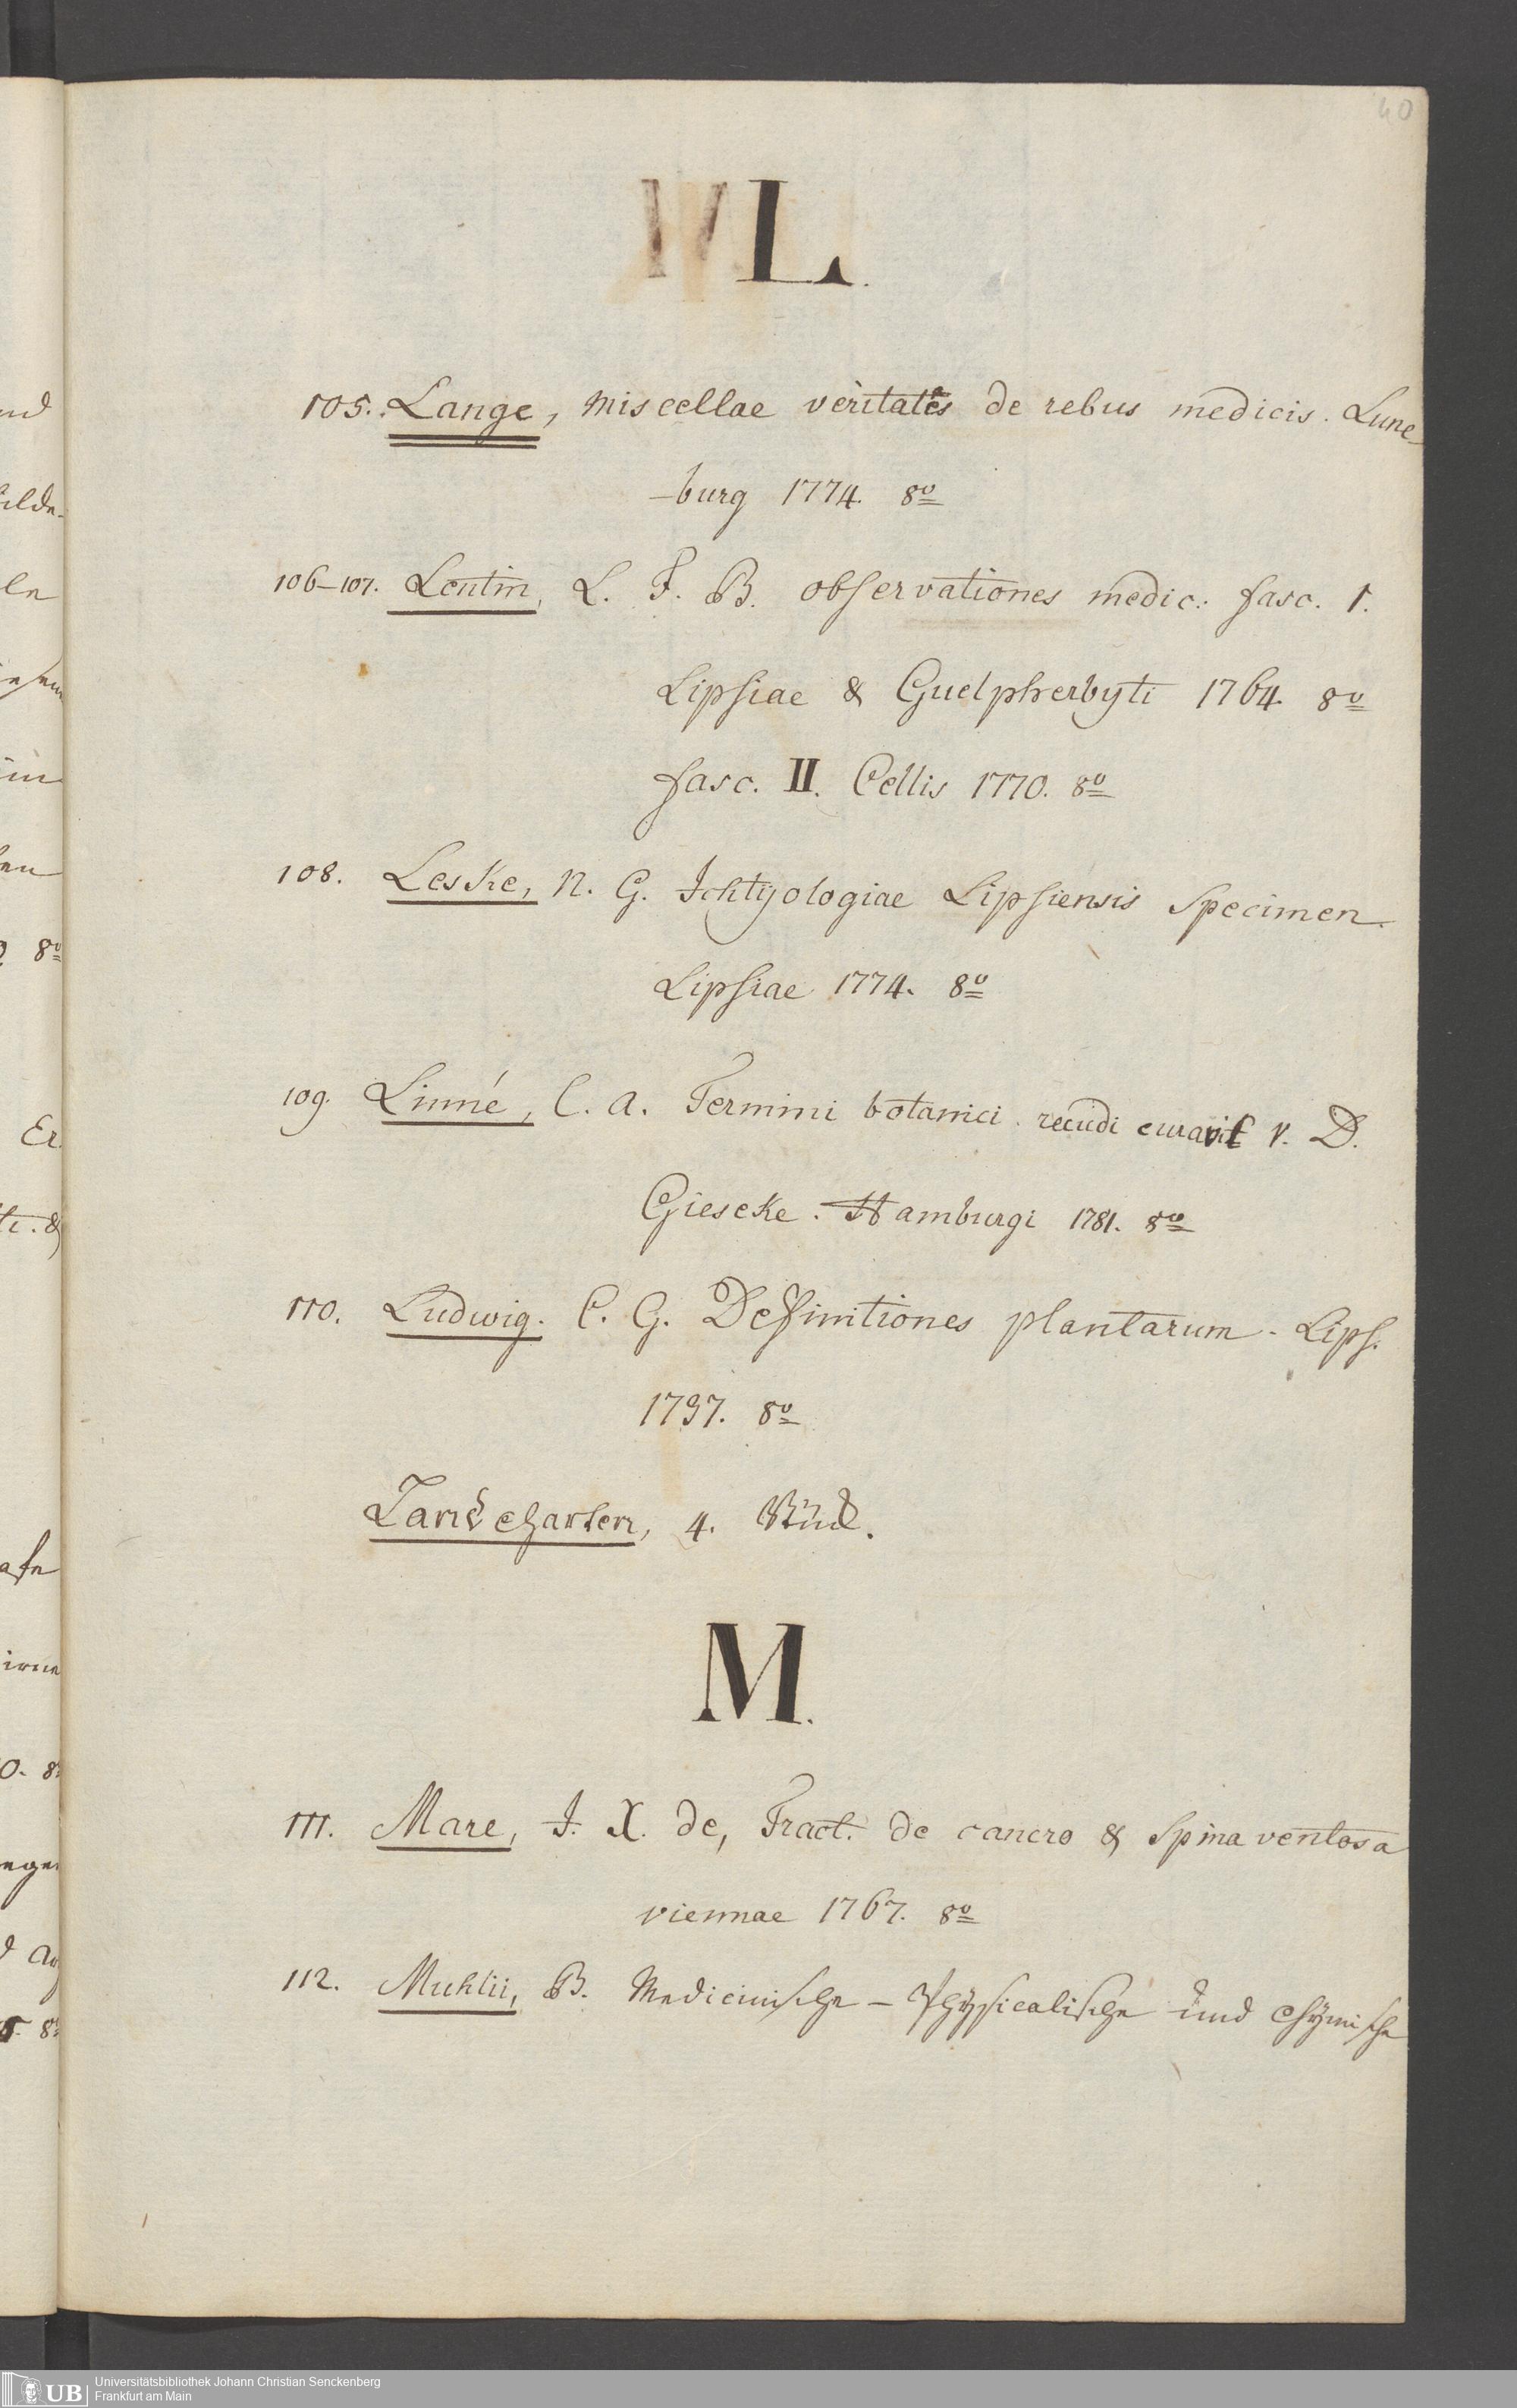 40
L.
105. Lange, Miscellae veritates de rebus medicis. Lune-
-burg 1774. 8º
106-107. Lentin, L. F. B. observationes medic. fasc. 1.
Lipsiae & Guelpherbyti 1764. 8º
fasc. II. Cellis 1770. 8º
108. Leske, N. G. Ichtyologiae Lipsiensis Specimen.
Lipsiae 1774. 8º
109. Linné, C. a. Termini botanici. recudi curavit v. D.
Gieseke. Hamburgi 1781. 8º
110. Ludwig. C. G. Deffinitiones plantarum. Lips.
1737. 8º
Landcharten, 4. Stück.
M.
111. Mare, J. X. de, Tract. de cancro & Spina ventosa
viennae 1767. 8º
112. Muhlii, B. Medicinische - Physicalische und Chymische
Universitätsbibliothek Johann Christian Senckenberg
UB Frankfurt am Main